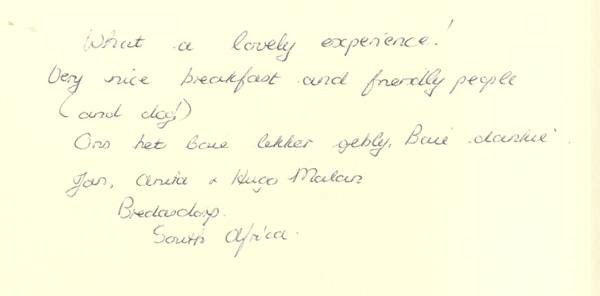 What a lovely experience!
Very nice breakfast and friendly people
(and dog!)
Ons het baie lekker gebly. Baie dankie.
Jan, Anita & Hugo Malan
Bredasdorp.
South Africa.